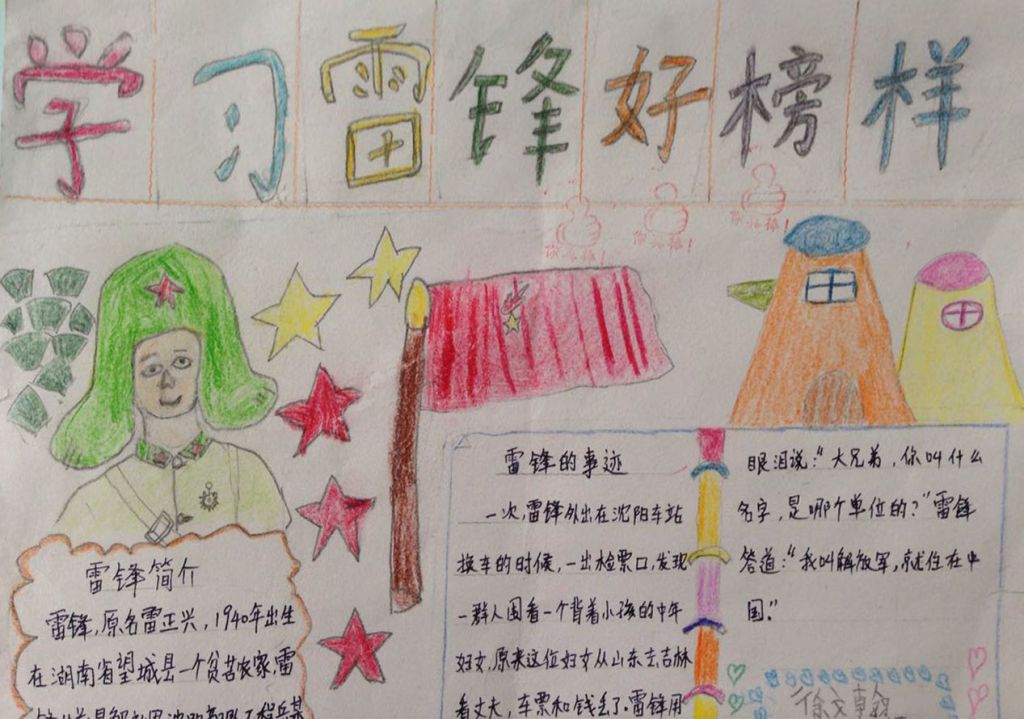 学习雷锋好榜样
你真棒!
你真棒!
你真棒!
雷锋简介
雷锋,原名雷正兴,1940年出生
在湖南省望城县一个贫苦农家,雷
雷锋的事迹
一次,雷锋外出在沈阳车站
换车的时候,一出检票口,发现
一群人围看一个背着小孩的中年
妇女,原来这位妇女从山东去吉林
看丈夫,车票和钱丢了。雷锋用
眼泪说:“大兄弟,你叫什么
名字,是哪个单位的?”雷锋
答道:“我叫解放军,就住在中
国。”